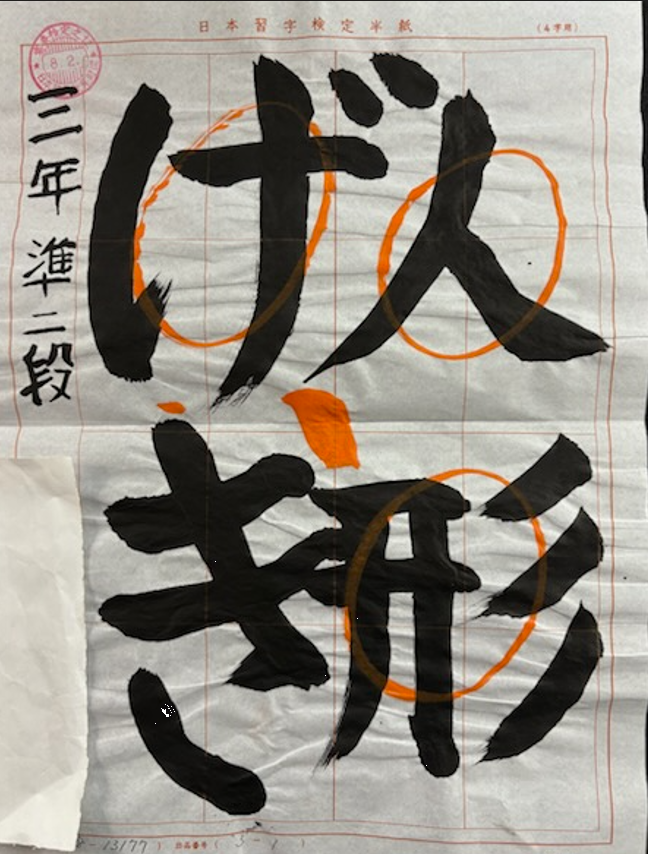 日本習字検定半紙
(4字用)
8.2.
人形
げき
三年 準二段
13177 ) 出品番号 (